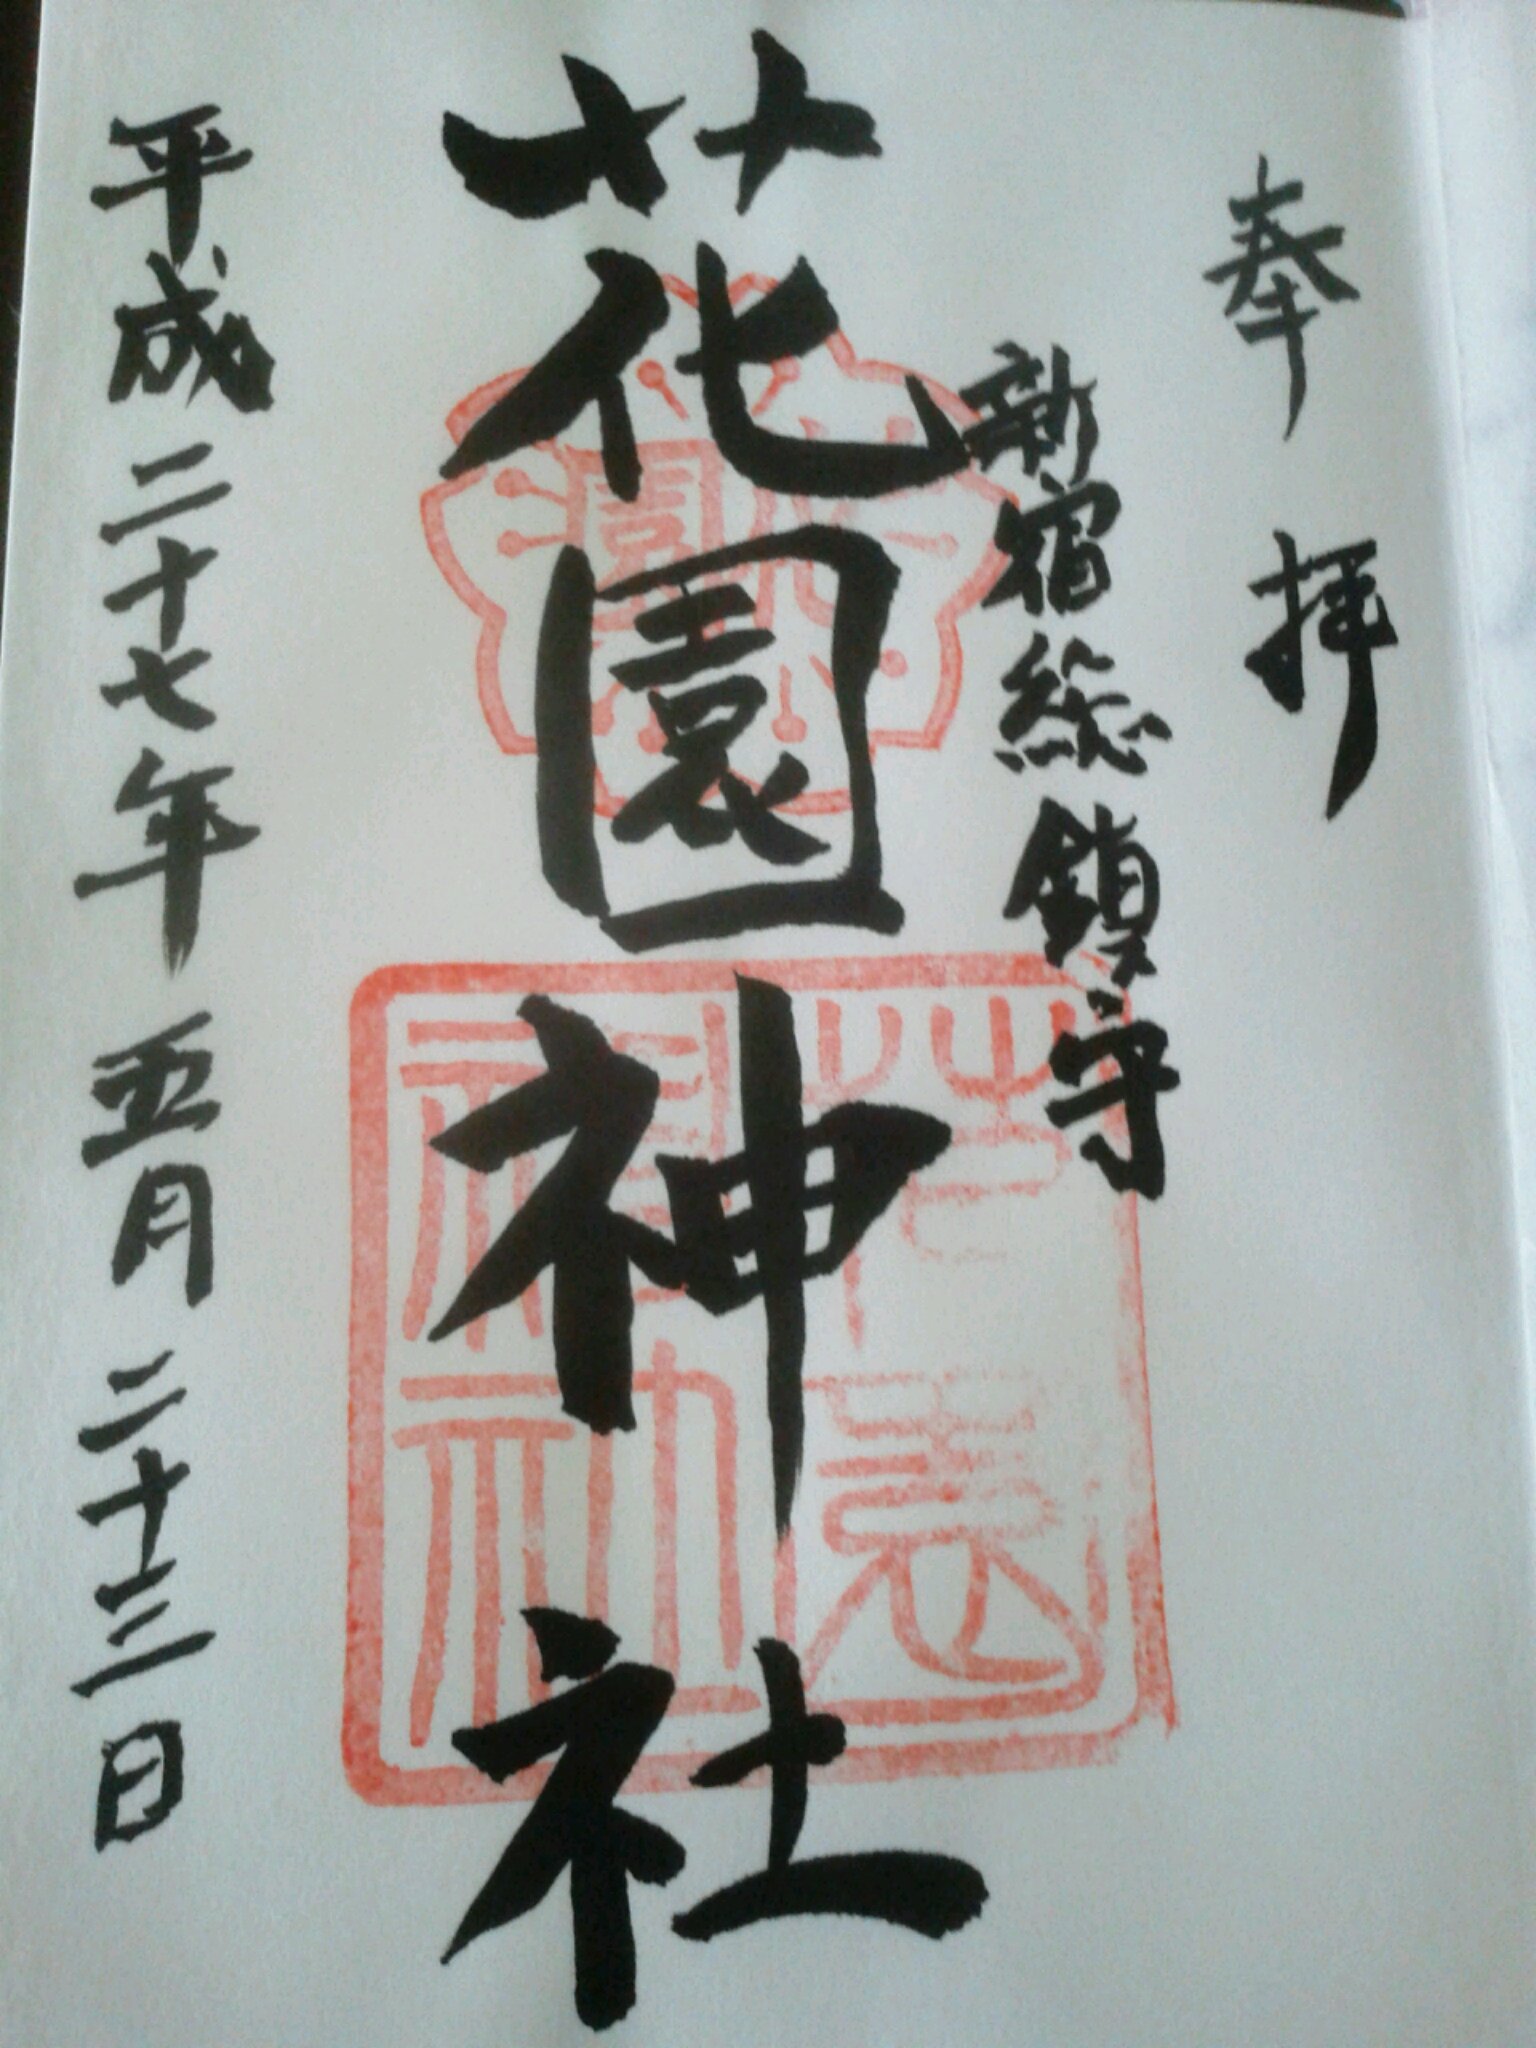 奉拝
新宿総鎮守
花園神社
平成二十七年五月二十三日
花園
花園神社